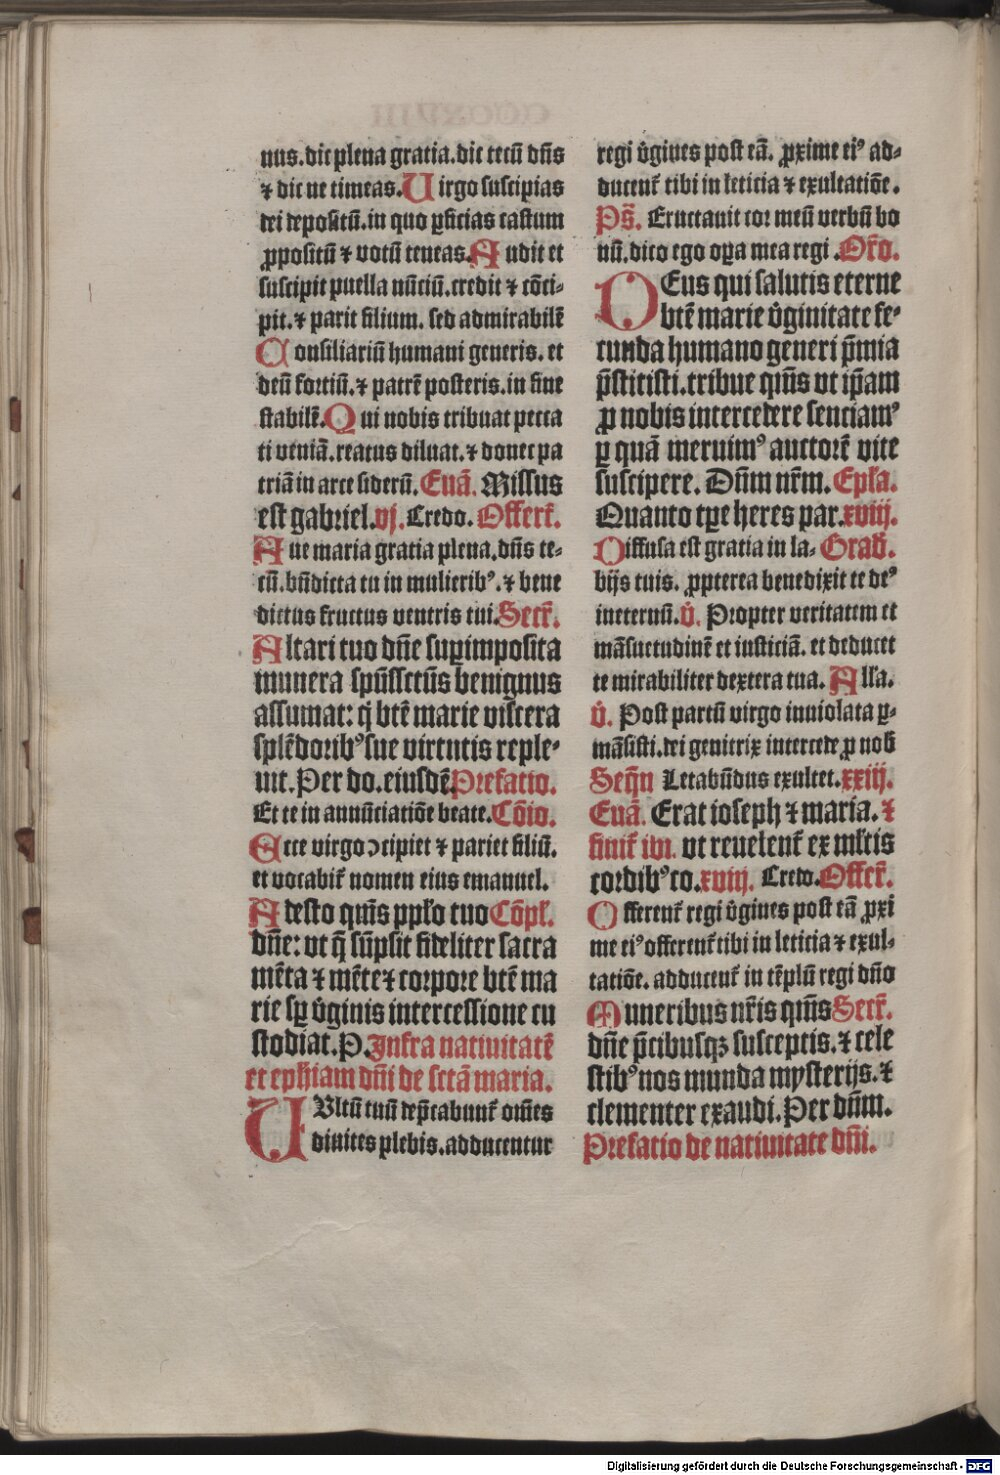 nus. dic plena gratia. dic tecū dn̄s
⁊ dic ne timeas. Uirgo suscipias
dei depositū. in quo ꝑficias castum
ꝓpositū ⁊ votū teneas. Audit et
suscipit puella nūciū. credit ⁊ cōci-
pit. ⁊ parit filium. sed admirabilē
Consiliariū humani generis. et
deū fortiū. ⁊ patrē posteris. in fine
stabilē. Qui nobis tribuat pecca
ti veniā. reatus diluat. ⁊ donet pa
triā in arce siderū. Euā. Missus
est gabriel. vj. Credo. Offert̄.
Aue maria gratia plena. dn̄s te-
cū. bn̄dicta tu in mulieribꝰ. ⁊ bene
dictus fructus ventris tui. Secr̄.
Altari tuo dn̄e suꝑimposita
munera spūssctūs benignus
assumat: q̇ btē marie viscera
splēdoribꝰ sue virtutis reple-
uit. Per do. eiusdē. Prefatio.
Et te in annūciatiōe beate. Cōio.
Ecce virgo ↄcipiet ⁊ pariet filiū.
et vocabit̄ nomen eius emanuel.
Adesto qm̄s pplo tuo Cōpl.
dn̄e: vt q̄ sūpsit fideliter sacra
mēta ⁊ mēte ⁊ corpore btē ma
rie sꝑ v̇ginis intercessione cu
stodiat. P. Infra natiuitatē
et ephiam dn̄i de sctā maria.
UUltū tuū dep̄cabunt̄ om̄es
diuites plebis. adducentur
regi v̇gines post eā. ꝓxime eiꝰ ad-
ducent̄ tibi in leticia ⁊ exultatiōe.
Ps̄. Eructauit cor meū verbū bo
nū. dico ego oꝑa mea regi. Or̄o.
DEus qui salutis eterne
btē marie v̇ginitate fe-
cunda humano generi p̄mia
p̄stitisti. tribue qm̄s vt ip̄am
ꝓ nobis intercedere senciamꝰ
ꝑ quā meruimꝰ auctorē vite
suscipere. Dn̄m nr̄m. Epla.
Quanto tꝑe heres par. xviij.
Diffusa est gratia in la- Grad̄.
bijs tuis. ꝓpterea benedixit te deꝰ
ineternū. v̇. Propter veritatem et
māsuetudinē et iusticiā. et deducet
te mirabiliter dextera tua. Alla.
v̇. Post partū virgo inuiolata ꝑ-
māsisti. dei genitrix intercede ꝓ nob̄
Seqn̄ Letabūdus exultet. xxiij.
Euā. Erat ioseph ⁊ maria. ⁊
finit̄ ibi. vt reuelent̄ ex ml̄tis
cordibꝰ co. xviij. Credo. Offer̄.
Offerent̄ regi v̇gines post eā ꝓxi
me eiꝰ offerent̄ tibi in leticia ⁊ exul-
tatiōe. adducent̄ in tēplū regi dn̄o
Muneribus nr̄is qm̄s Secr̄.
dn̄e p̄cibusqꝫ susceptis. ⁊ cele
stibꝰ nos munda mysterijs. ⁊
clementer exaudi. Per dn̄m.
Prefatio de natiuitate dn̄i.
Digitalisierung gefördert durch die Deutsche Forschungsgemeinschaft - DFG